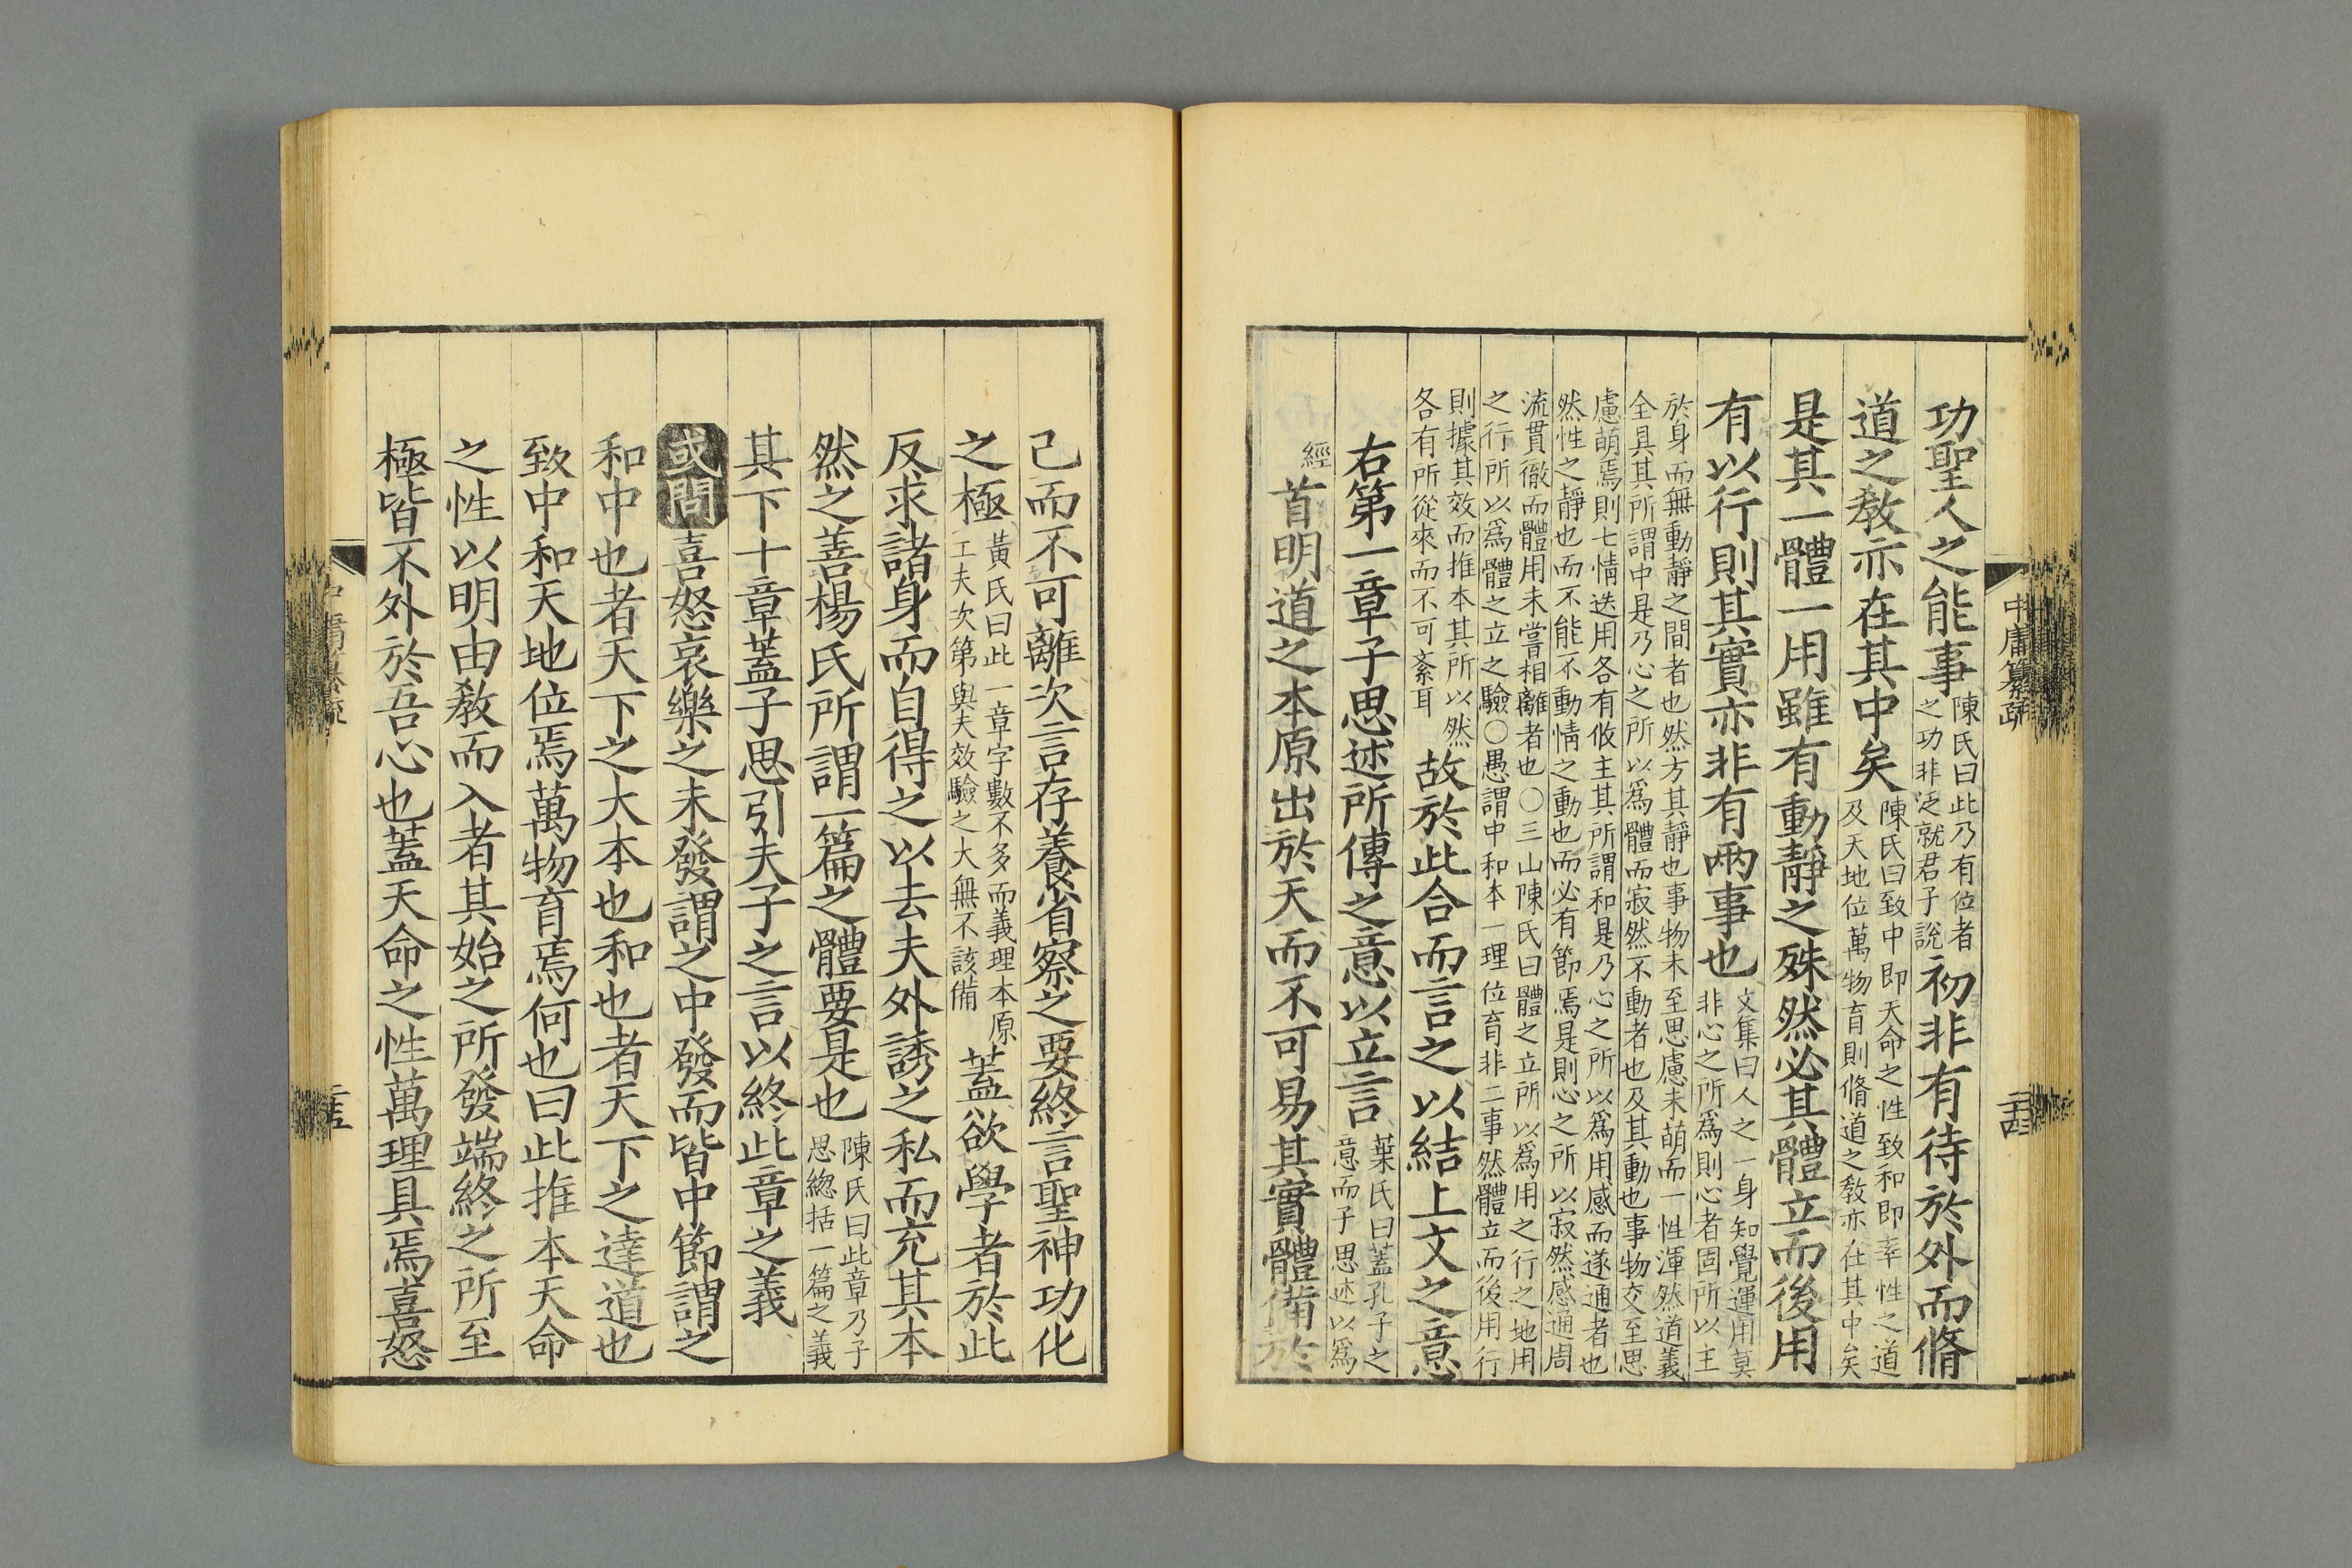 功聖人之能事陳氏曰此乃有位者之功非泛就君子說初非有待於外而脩
道之教亦在其中矣陳氏曰致中即天命之性致和即率性之道及天地位萬物育則脩道之教亦在其中矣
是其一體一用雖有動靜之殊然必其體立而後用
有以行則其實亦非有兩事也文集曰人之一身知覺運用莫非心之所爲則心者固所以主
於身而無動靜之間者也然方其靜也事物未至思慮未萌而一性渾然道義
全具其所謂中是乃心之所以爲體而寂然不動者也及其動也事物交至思
慮萌焉則七情迭用各有攸主其所謂和是乃心之所以爲用感而遂通者也
然性之靜也而不能不動情之動也而必有節焉是則心之所以寂然感通周
流貫徹而體用未嘗相離者也○三山陳氏曰體之立所以爲用之行之地用
之行所以爲體之立之驗○愚謂中和本一理位育非二事然體立而後用行
則據其效而推本其所以然各有所從來而不可紊耳故於此合而言之以結上文之意
右第一章子思述所傳之意以立言葉氏曰蓋孔子之意而子思述以爲
經首明道之本原出於天而不可易其實體備於
中庸纂疏
己而不可離次言存養省察之要終言聖神功化
之極黃氏曰此一章字數不多而義理本原工夫次第與夫效驗之大無不該備蓋欲學者於此
反求諸身而自得之以去夫外誘之私而充其本
然之善楊氏所謂一篇之體要是也陳氏曰此章乃子思緫括一篇之義
其下十章蓋子思引夫子之言以終此章之義
或問喜怒哀樂之未發謂之中發而皆中節謂之
和中也者天下之大本也和也者天下之達道也
致中和天地位焉萬物育焉何也曰此推本天命
之性以明由教而入者其始之所發端終之所至
極皆不外於吾心也蓋天命之性萬理具焉喜怒